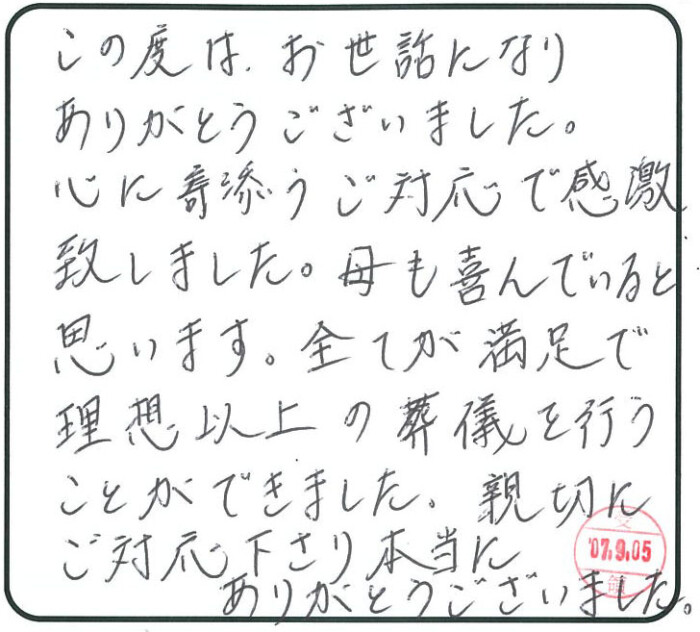 この度は、お世話になり
ありがとうございました。
心に寄添うご対応で感激
致しました。母も喜んでいると
思います。全てが満足で
理想以上の葬儀を行う
ことができました。親切に
ご対応下さり本当に
ありがとうございました。
受
'07.9.05
領